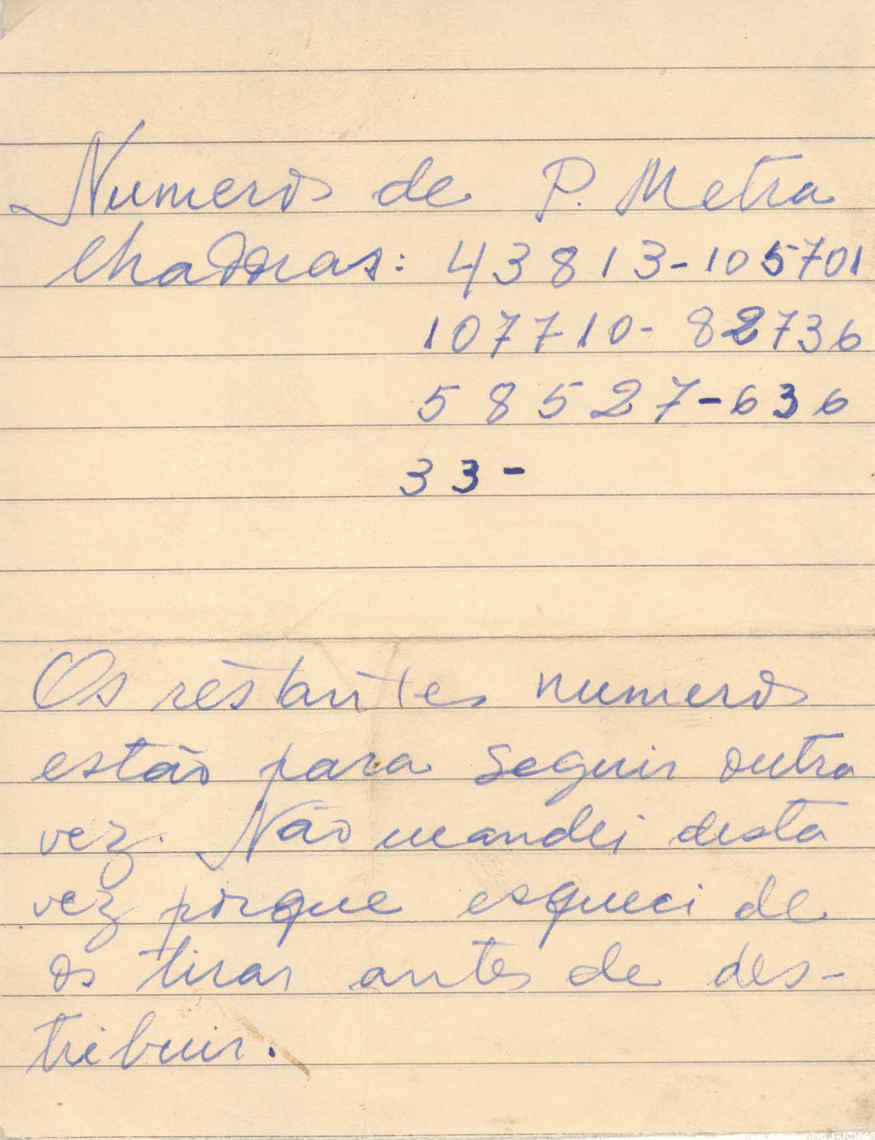 Numeros de P. Metra
lhadoras: 43813-105701
107710- 82736
58527-636
33-
Os restantes numeros
estão para seguir outra
vez. Não mandei desta
vez porque esqueci de
os tirar antes de des-
tribuir.